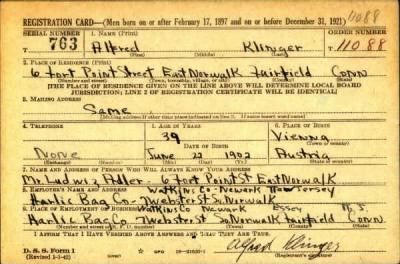 11088
REGISTRATION CARD—(Men born on or after February 17, 1897 and on or before December 31, 1921)
SERIAL NUMBER 1. NAME (Print) ORDER NUMBER
763 Alfred Klinger 11088
(First) (Middle) (Last)
2. PLACE OF RESIDENCE (Print)
6 Fort Point Street East Norwalk Fairfield Conn
(Number and street) (Town, township, village, or city) (County) (State)
[THE PLACE OF RESIDENCE GIVEN ON THE LINE ABOVE WILL DETERMINE LOCAL BOARD
JURISDICTION; LINE 2 OF REGISTRATION CERTIFICATE WILL BE IDENTICAL]
3. MAILING ADDRESS
Same
[Mailing address if other than place indicated on line 2. If same insert word same]
4. TELEPHONE 5. AGE IN YEARS 6. PLACE OF BIRTH
39 Vienna
DATE OF BIRTH (Town or county)
None June 22 1902 Austria
(Exchange) (Number) (Mo.) (Day) (Yr.) (State or country)
7. NAME AND ADDRESS OF PERSON WHO WILL ALWAYS KNOW YOUR ADDRESS
Mr. Ludwig 6 Fort Point St East Norwalk
8. EMPLOYER'S NAME AND ADDRESS Watkins Co - Newark New Jersey
Bag Co - Webster St So. Norwalk
9. PLACE OF EMPLOYMENT OR BUSINESS Watkins Co Newark Essex N. J.
Bag Co - Webster St So Norwalk Fairfield Conn.
I AFFIRM THAT I HAVE VERIFIED ABOVE ANSWERS AND THAT THEY ARE TRUE.
D. S. S. Form 1
(Revised 1-3-42) GPO 16—21630-1 Alfred Klinger